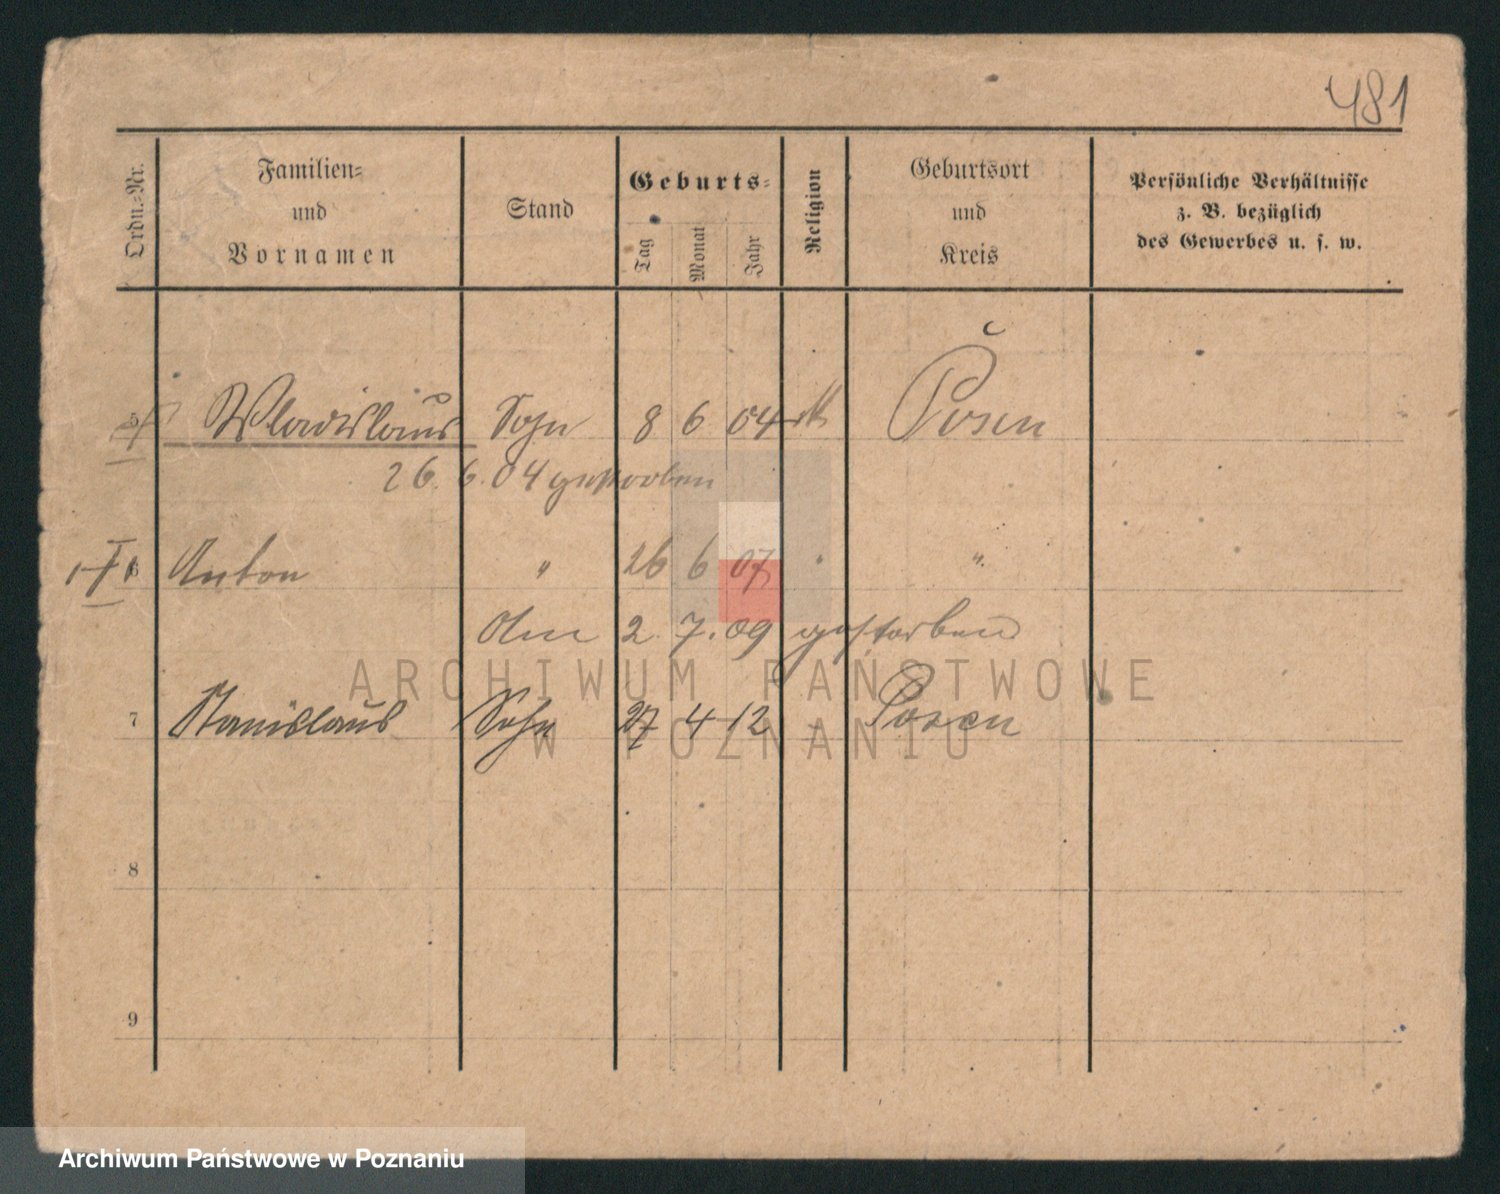 481
Ordn.-Nr.
Familien-
und
Vornamen
Stand
Geburts-
Tag
Monat
Jahr
Religion
Geburtsort
und
Kreis
Persönliche Verhältnisse
z. B. bezüglich
des Gewerbes u. s. w.
5 Wladislaus Sohn 8 6 04 kth Posen
26. 6. 04 gestorben
6 Anton " 26 6 07 " "
Am 2. 7. 09 gestorben
ARCHIWUM PAŃSTWOWE
7 Stanislaus Sohn 27 4 12 " Posen
W POZNANIU
8
9
Archiwum Państwowe w Poznaniu